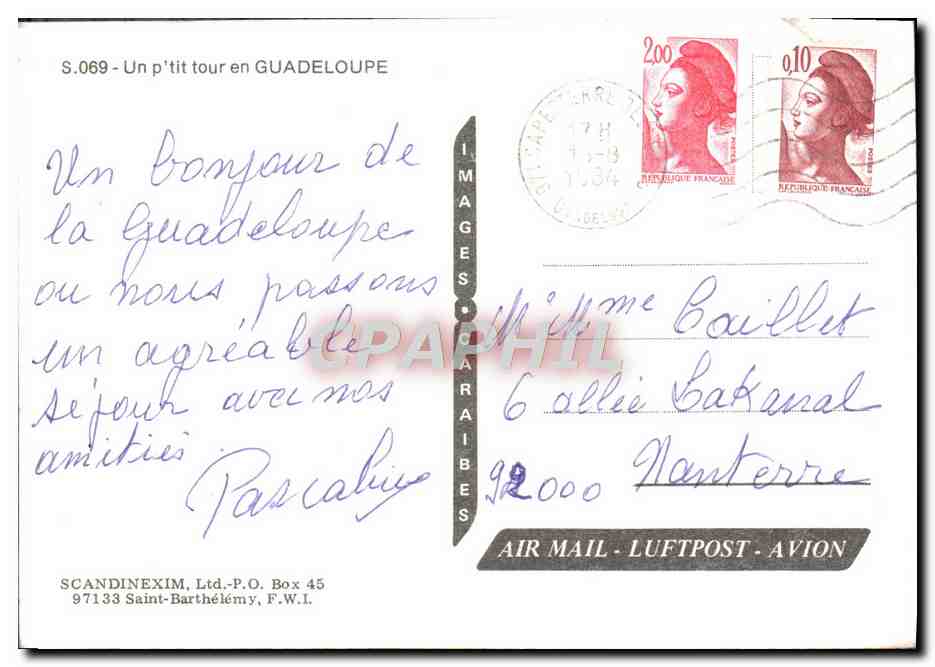 S.069 - Un p'tit tour en GUADELOUPE
Un bonjour de
la Guadeloupe
ou nous passons
un agréable
séjour avec nos
amitiés
IMAGES • CARAIBES
2,00
POSTES
REPUBLIQUE FRANÇAISE
0,10
POSTES
REPUBLIQUE FRANÇAISE
17 H
M Mme Caillet
6 allée Lakanal
92000 Nanterre
AIR MAIL - LUFTPOST - AVION
SCANDINEXIM, Ltd.-P.O. Box 45
97133 Saint-Barthélémy, F.W.I.
CPAPHIL